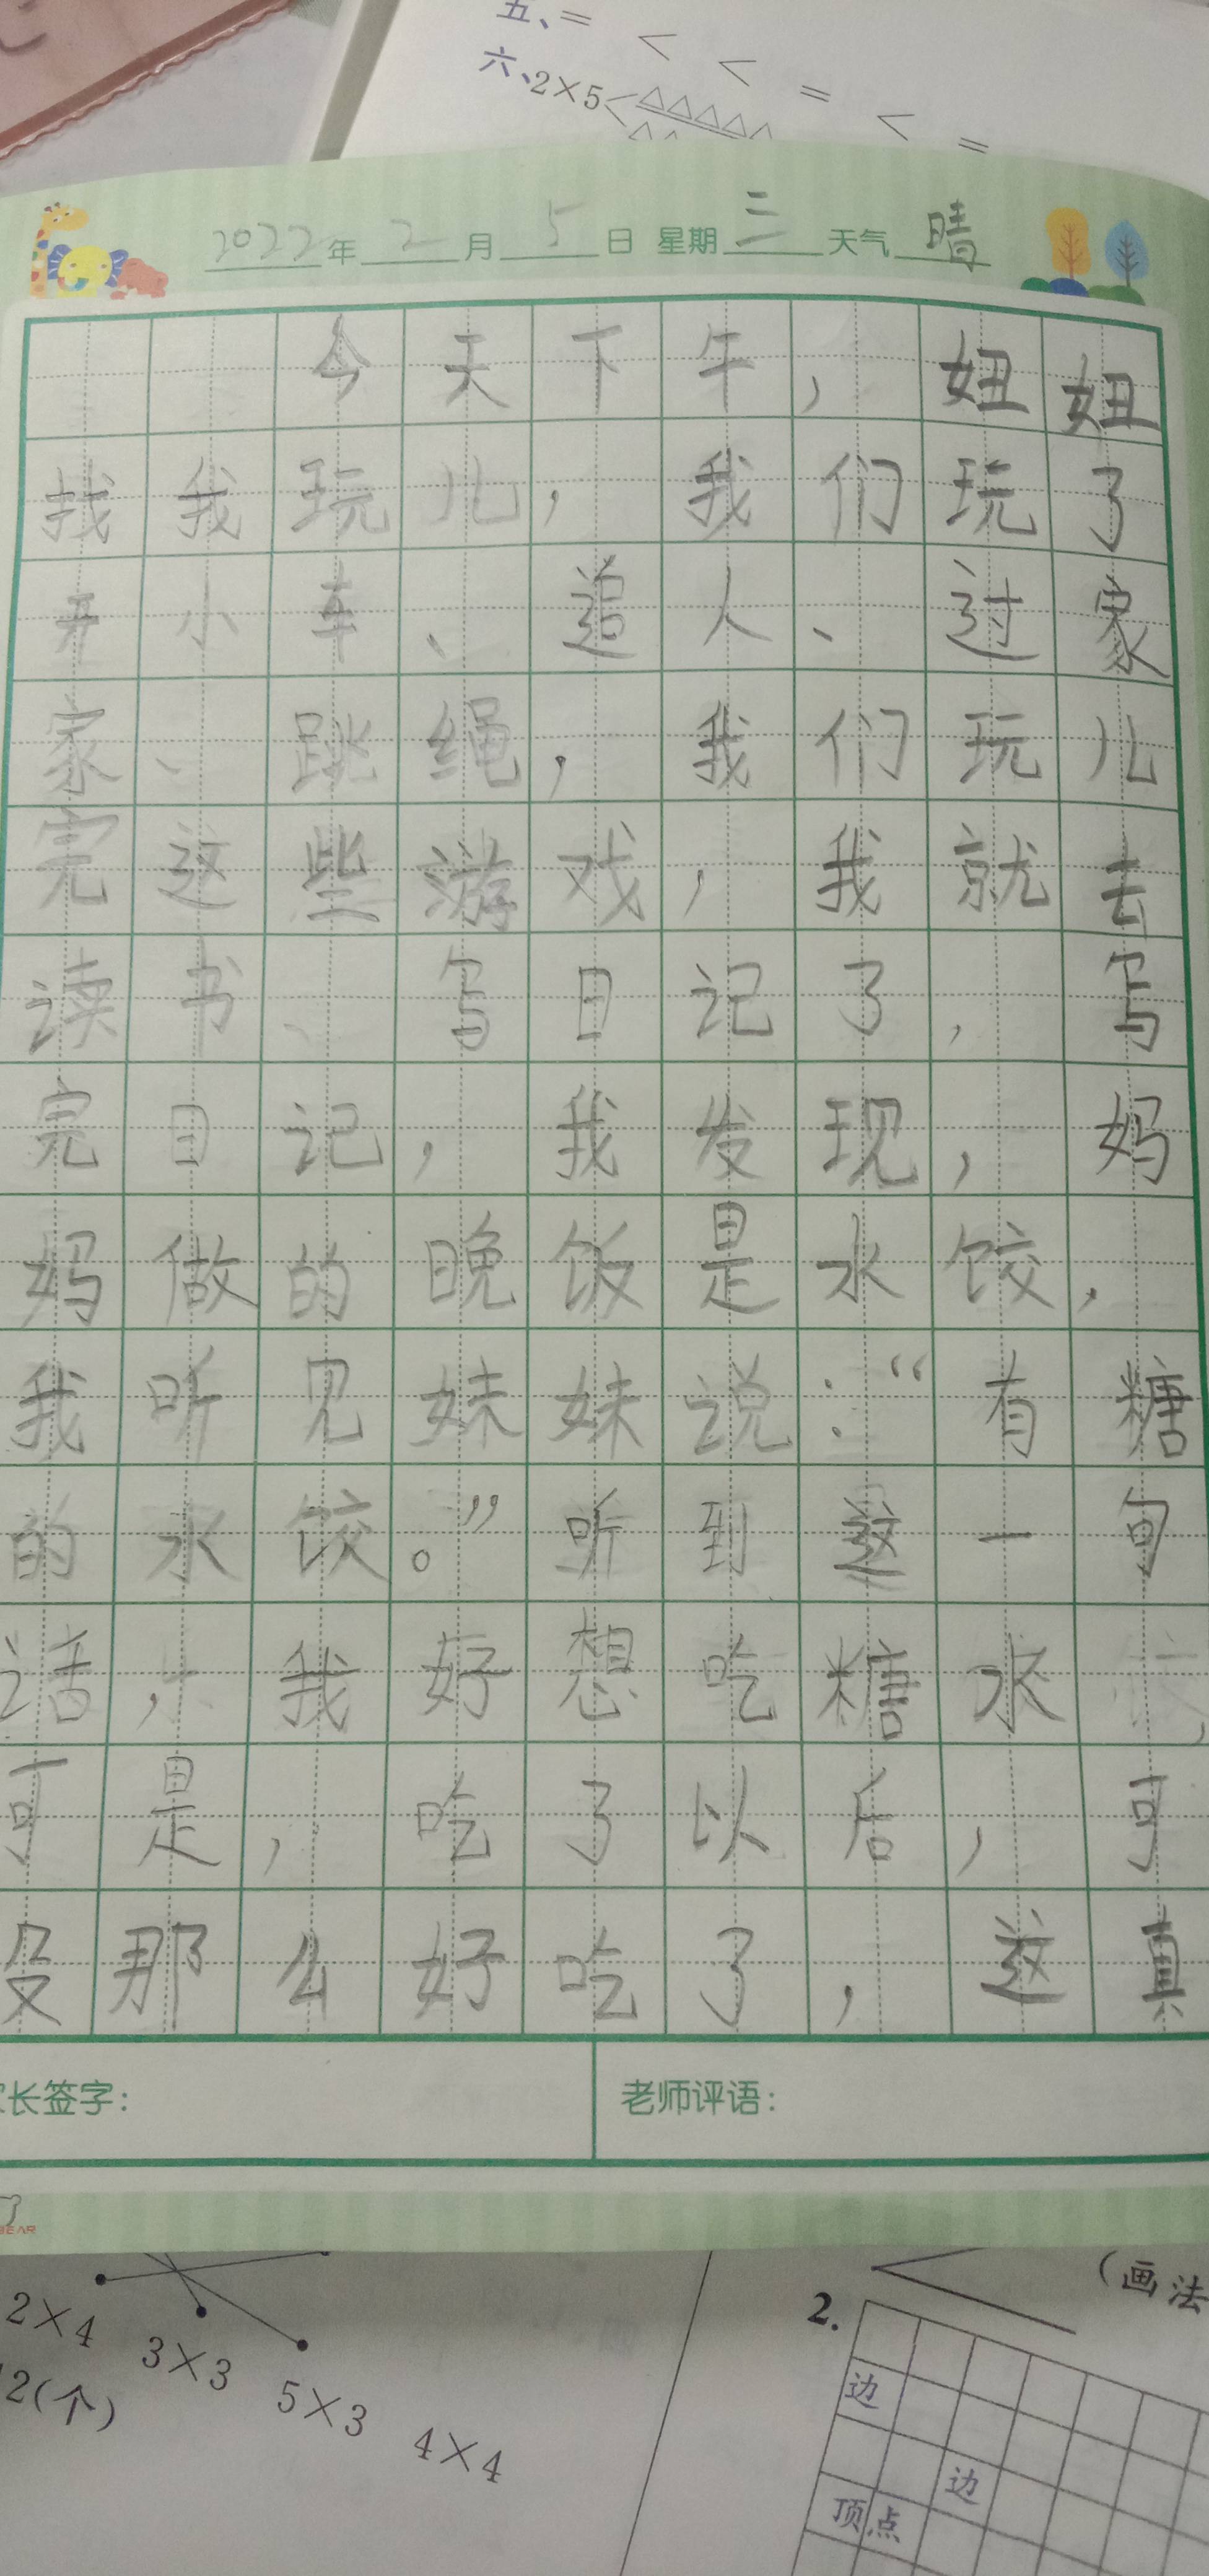 五、= < < = < =
六、2×5<
2022年2月5日 星期三 天气晴
今天下午，妞妞
找我玩儿，我们玩了
开小车、追人、过家
家、跳绳，我们玩儿
完这些游戏，我就去
读书、写日记了，写
完日记，我发现，妈
妈做的晚饭是水饺，
我听见妹妹说：“有糖
的水饺。”听到这一句
话，我好想吃糖水饺，
可是，吃了以后，可
没那么好吃了，这真
家长签字：
老师评语：
BEAR
2×4 3×3 5×3 4×4
2(个)
(画法
2.
边
边
顶点